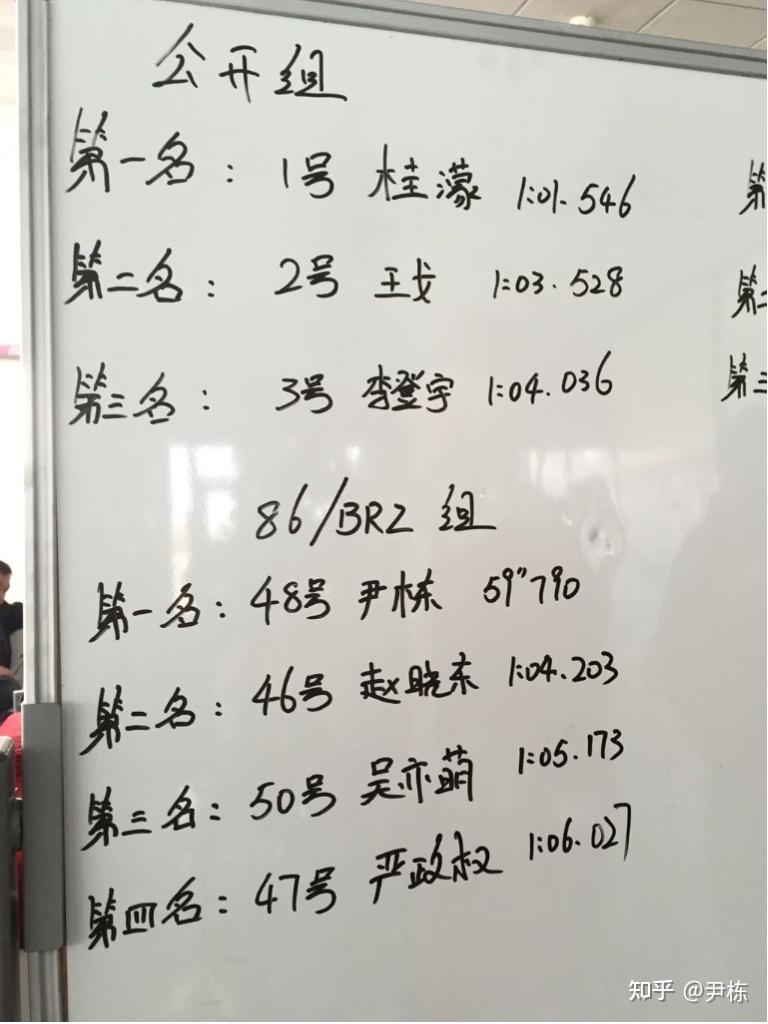 公开组
第一名：1号 桂濛 1:01.546
第二名：2号 王戈 1:03.528
第三名：3号 李登宇 1:04.036
86/BRZ 组
第一名：48号 尹栋 59"790
第二名：46号 赵晓东 1:04.203
第三名：50号 吴亦萌 1:05.173
第四名：47号 严政权 1:06.027
第
第二
第三
知乎 @尹栋